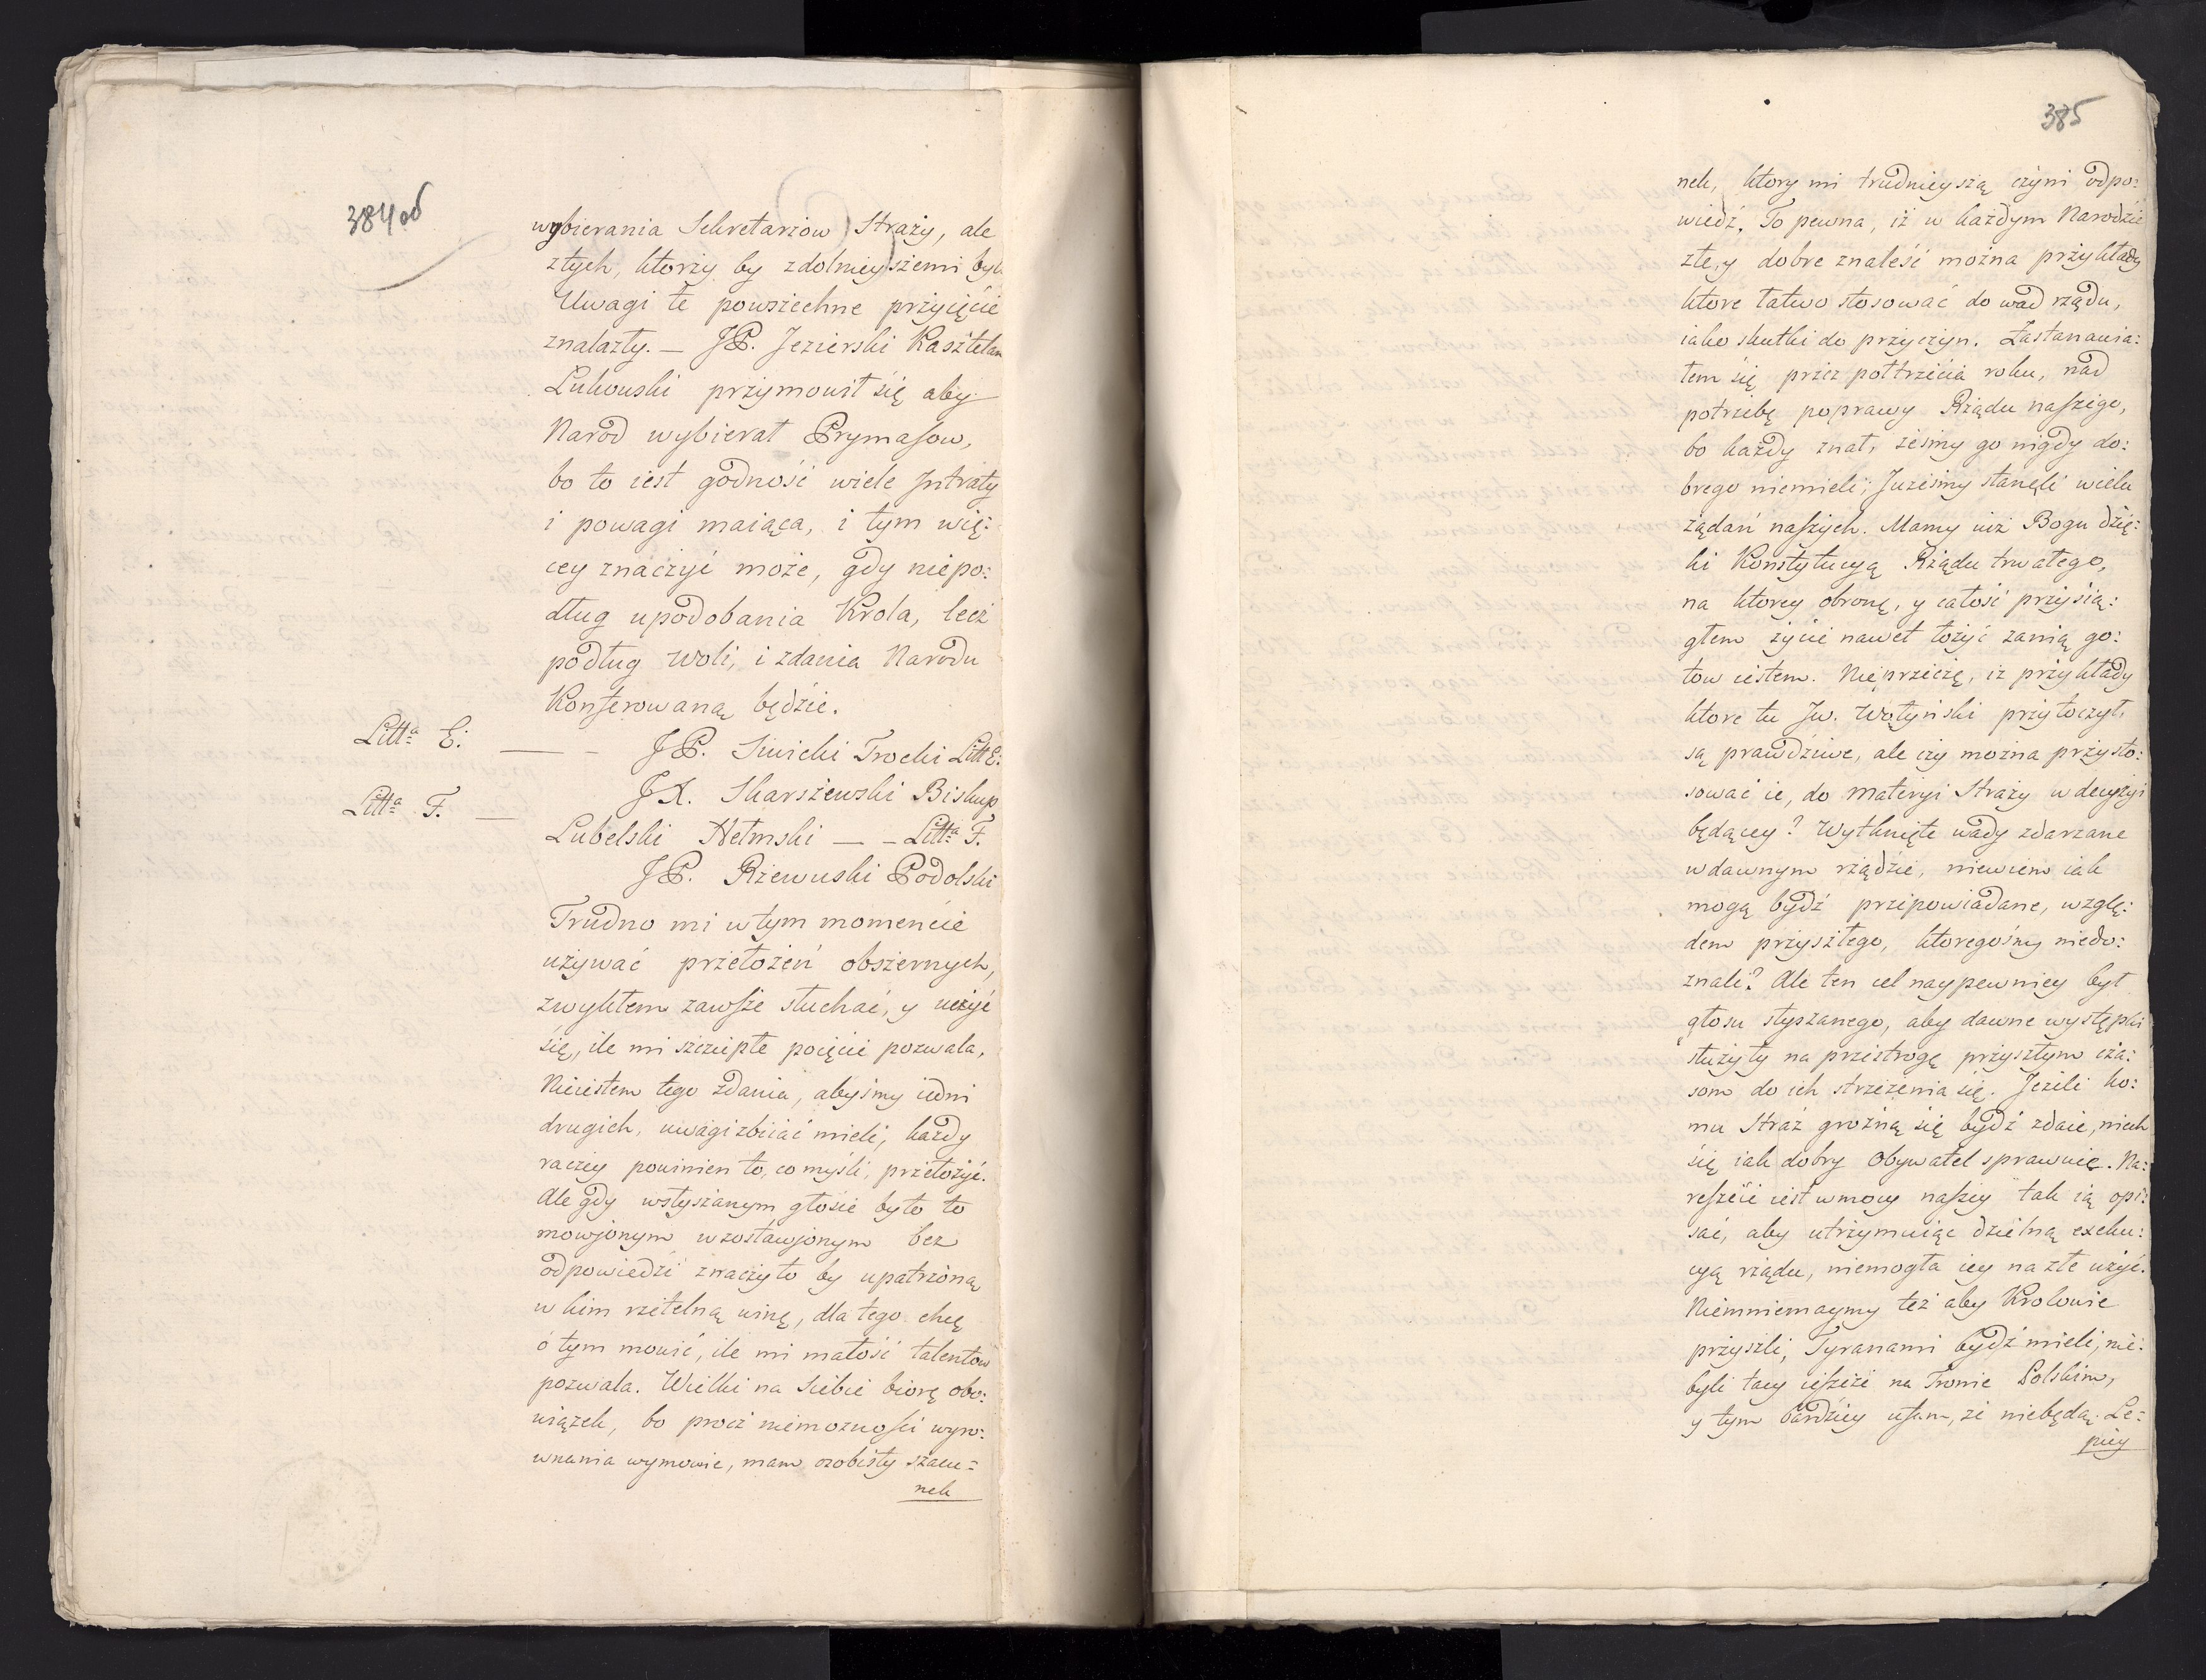 384 об
wybierania Sekretarzow Straży, ale
ztych, ktorzy by zdolnieyszemi byli
Uwagi te powszechne przyięcie
znalazły. — JP. Jezierski Kasztelan
Łukowski przymowił się aby
Narod wybierał Prymasow,
bo to iest godność wiele Jntraty
i powagi maiąca, i tym wię:
cey znaczyć może, gdy niepo:
dług upodobania Krola, lecz
podług woli, i zdania Narodu
Konferowaną będzie.
Litt:a E. — – JP. Siwicki Trocki Litt E:
JX. Skarszewski Biskup
Litt:a F. — Lubelski Hełmski — – Litt:a F.
JP. Rzewuski Podolski
Trudno mi w tym momencie
używać przełożeń obszernych,
zwykłem zawsze słuchać, y uczyć
się, ile mi szczupłe poięcie pozwala,
Nieiestem tego zdania, abyśmy iedni
drugich, uwagi zbiiać mieli, każdy
raczey powinien to, co myśli, przełożyć.
Ale gdy wsłyszanym głosie było to
mowjonym wzostawjonym bez
odpowiedzi znaczyło by upatrzoną
w kim rzetelną winę, dla tego chcę
o tym mowić, ile mi małość talentow
pozwala. Wielki na siebie biorę obo:
wiązek, bo procz niemożności wyro:
wnania wymowie, mam osobisty szacu:
nek
385
nek, ktory mi trudnieyszą czyni odpo:
wiedź. To pewna, iż w każdym Narodzie
złe, y dobre znaleść można przykłady
ktore łatwo stosować do wad rządu,
iako skutki do przyczyn. Zastanawia:
łem się przez półtrzecia roku, nad
potrzebę poprawy Rządu naszego,
bo każdy znał, żeśmy go nigdy do:
brego niemieli; Jużeśmy stanęli u celu
żądań naszych. Mamy iuż Bogu dzię:
ki Konstytucyą Rządu trwałego,
na ktorey obronę, y całość przysią:
głem życie nawet łożyć zanią go:
tow iestem. Nieprzeczę, iż przykłady
ktore tu Jw. Wołyński przytoczył,
są prawdziwe, ale czy można przysto:
sować ie, do materyi Straży w decyzyi
będącey? Wytknięte wady zdarzane
w dawnym rządzie, niewiem iak
mogą bydź przepowiadane, wzglę:
dem przyszłego, ktoregośmy niedo:
znali? Ale ten cel naypewniey był
głosu słyszanego, aby dawne występki
służyły na przestrogę przyszłym cza:
som do ich strzeżenia się. Jeżeli ko:
mu Straż groźną się bydź zdaie, niech
się iak dobry Obywatel sprawuie. Na:
reszcie iest w mocy naszey tak ią opi:
sać, aby utrzymuiąc dzielną exeku:
cyą rządu, niemogła iey na złe użyć.
Niemniemaymy też aby Krolowie
przyszli, Tyranami bydź mieli, nie:
byli tacy ieszcze na Tronie Polskim,
y tym bardziey ufam, że niebędą. Le:
piey